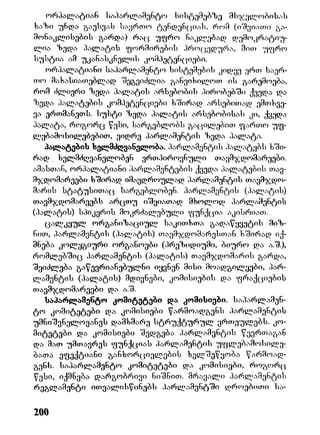 ორპალატიან საპარლამენტო სისტემებზე მსჯელობისას
ხაზი უნდა გაესვას საერთო ტენდენციას, რომ (იშვიათი გა-
მონაკლისების გარდა) რაც უფრო ნაკლებად დემოკრატიუ-
ლია ზედა პალატის ფორმირების პროცედურა, მით უფრო
სუსტია ამ უკანასკნელის კომპეტენციები.
ორპალატიანი საპარლამენტო სისტემების კიდევ ერთ საერ-
თო მახასიათებლად შეგვიძლია განვიხილოთ ის გარემოება,
რომ ძლიერი ზედა პალატის არსებობის პირობებში ქვედა და
ზედა პალატების კომპეტენციები ხშირად არსებითად ემთხვე-
ვა ერთმანეთს. სუსტი ზედა პალატის არსებობისას კი, ქვედა
პალატა, როგორც წესი, სარგებლობს გაცილებით ფართო უფ-
ლებამოსილებებით, ვიდრე პარლამენტის ზედა პალატა.
პალატების ხელმძღვანელობა. პარლამენტის პალატებს ხში-
რად ხელმძღვანელობენ ერთპიროვნული თავმჯდომარეები.
ამასთან, ორპალატიანი პარლამენტების ქვედა პალატების თავ-
მჯდომარეები ხშირად იმავდროულად პარლამენტის თავმჯდო-
მარის სტატუსითაც სარგებლობენ. პარლამენტის (პალატის)
თავმჯდომარეებს არცთუ იშვიათად მხოლოდ პარლამენტის
(პალატის) სპიკერის მოკრძალებული ფუნქცია აკისრიათ.
ცალკეულ ორგანიზაციულ საკითხთა გადაწყვეტის მიზ-
ნით, პარლამენტის (პალატის) თავმჯდომარესთან ხშირად იქ-
მნება კოლეგიური ორგანოები (პრეზიდიუმი, ბიურო და ა.შ.),
რომლებშიც პარლამენტის (პალატის) თავმჯდომარის გარდა,
შეიძლება გაწევრიანებულნი იყვნენ მისი მოადგილეები, პარ-
ლამენტის (პალატის) მდივნები, კომისიების და ფრაქციების
თავმჯდომარეები და ა.შ.
საპარლამენტო კომიტეტები და კომისიები. საპარლამენ-
ტო კომიტეტები და კომისიები წარმოადგენს პარლამენტის
უმნიშვნელოვანეს დამხმარე სტრუქტურულ ერთეულებს. კო-
მიტეტები და კომისიები შედგება პარლამენტის წევრთაგან
და მათ უმთავრეს ფუნქციას პარლამენტის უფლებამოსილე-
ბათა ეფექტიანი განხორციელების ხელშეწყობა წარმოად-
გენს. საპარლამენტო კომიტეტები და კომისიები, როგორც
წესი, იქმნება დარგობრივი ნიშნით. მრავალი პარლამენტის
რეგლამენტი ითვალისწინებს პარლამენტში დროებითი სა-
200